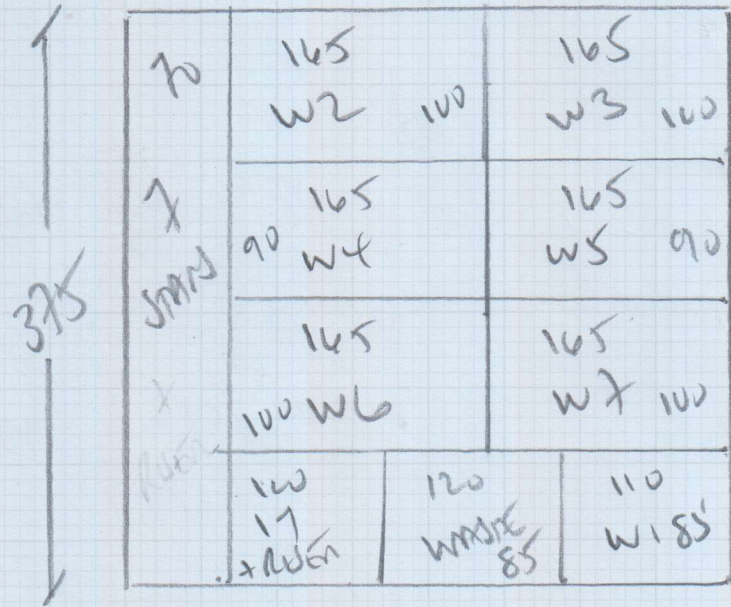 375
70
7
STAIRS
165
W2 100
165
W3 100
165
90 W4
165
W5 90
165
100 W6
165
W7 100
100
17
+ RISER
120
WASTE
85
110
W1 85